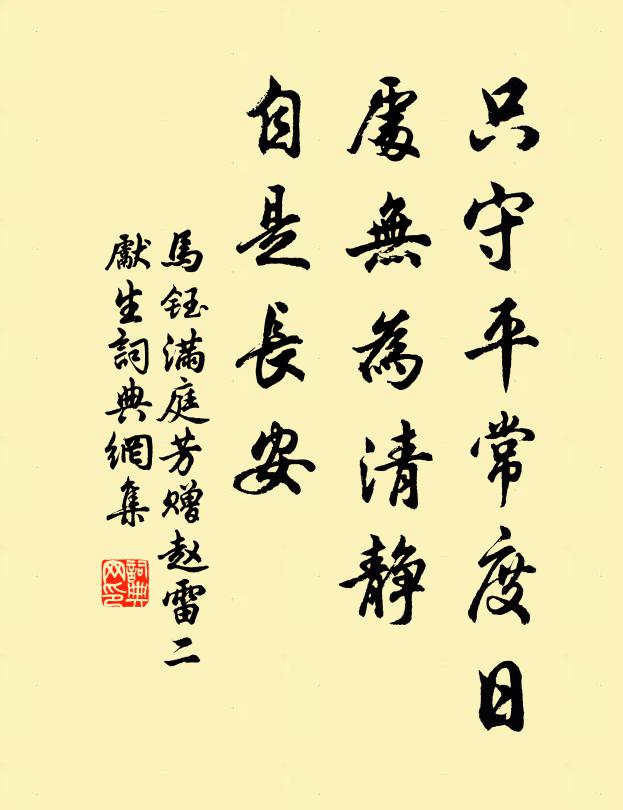 只守平常度日
處無為清静
自是長安
馬鈺满庭芳赠赵雷二
獻生詞典網集
詞典
网印